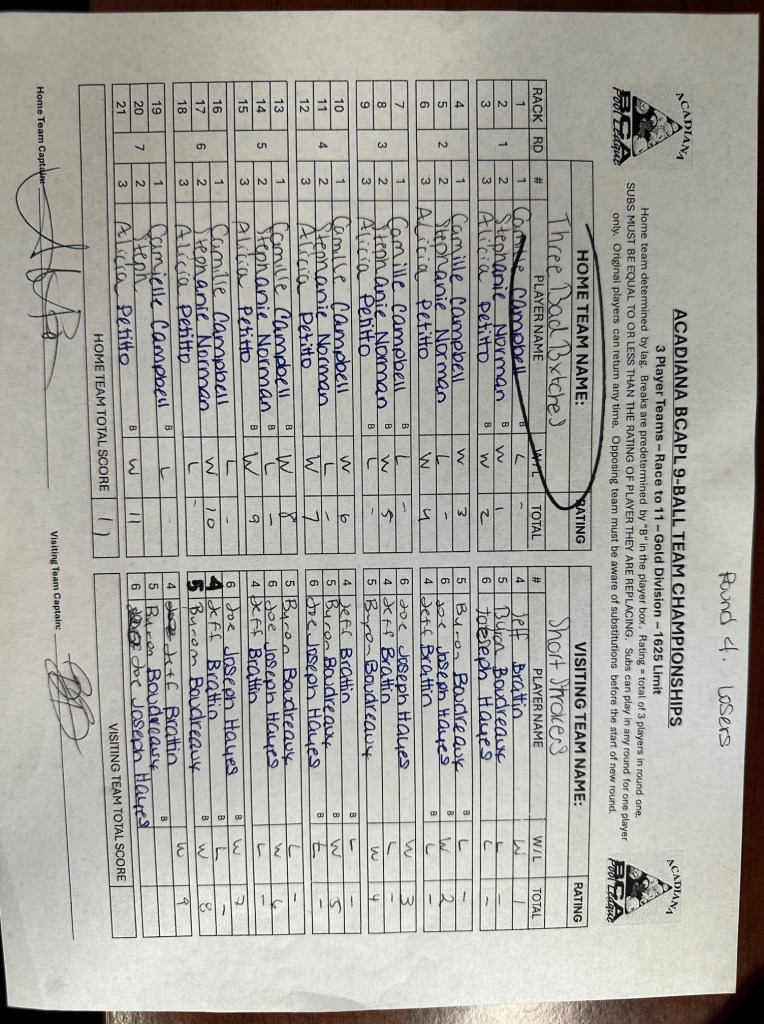 Round 4. Losers
ACADIANA
BCA
Pool League
ACADIANA BCAPL 9-BALL TEAM CHAMPIONSHIPS
3 Player Teams – Race to 11 – Gold Division – 1625 Limit
Home team determined by lag. Breaks are predetermined by "B" in the player box. Rating = total of 3 players in round one.
SUBS MUST BE EQUAL TO OR LESS THAN THE RATING OF PLAYER THEY ARE REPLACING. Subs can play in any round for one player
only. Original players can return any time. Opposing team must be aware of substitutions before the start of new round.
ACADIANA
BCA
Pool League
HOME TEAM NAME: RATING VISITING TEAM NAME: RATING
Three Bad Bxtches Short Strokes
RACK RD # PLAYER NAME W/L TOTAL # PLAYER NAME W/L TOTAL
1 1 Camille Campbell B L - 4 Jeff Brattin W 1
2 1 2 Stephanie Norman B W 1 5 Byron Boudreaux L -
3 3 Alicia Petitto B W 2 6 Joseph Hayes L -
4 1 Camille Campbell W 3 5 Byron Boudreaux B L -
5 2 2 Stephanie Norman L - 6 Joe Joseph Hayes B W 2
6 3 Alicia Petitto W 4 4 Jeff Brattin B L -
7 1 Camille Campbell B L - 6 Joe Joseph Hayes W 3
8 3 2 Stephanie Norman B W 5 4 Jeff Brattin L -
9 3 Alicia Petitto B L - 5 Byron Boudreaux W 4
10 1 Camille Campbell W 6 4 Jeff Brattin B L -
11 4 2 Stephanie Norman L - 5 Byron Boudreaux B W 5
12 3 Alicia Petitto W 7 6 Joe Joseph Hayes B L -
13 1 Camille Campbell B W 8 5 Byron Boudreaux L -
14 5 2 Stephanie Norman B L - 6 Joe Joseph Hayes W 6
15 3 Alicia Petitto B W 9 4 Jeff Brattin L -
16 1 Camille Campbell L - 6 Joe Joseph Hayes B W 7
17 6 2 Stephanie Norman W 10 4 Jeff Brattin B L -
18 3 Alicia Petitto L - 5 Byron Boudreaux B W 8
19 1 Camielle Campbell B L - 4 Jeff Brattin W 9
20 7 2 Steph B 5 Byron Boudreaux
21 3 Alicia Petitto B W 11 6 Joe Joseph Hayes
HOME TEAM TOTAL SCORE 11 VISITING TEAM TOTAL SCORE
Home Team Captain: Visiting Team Captain: